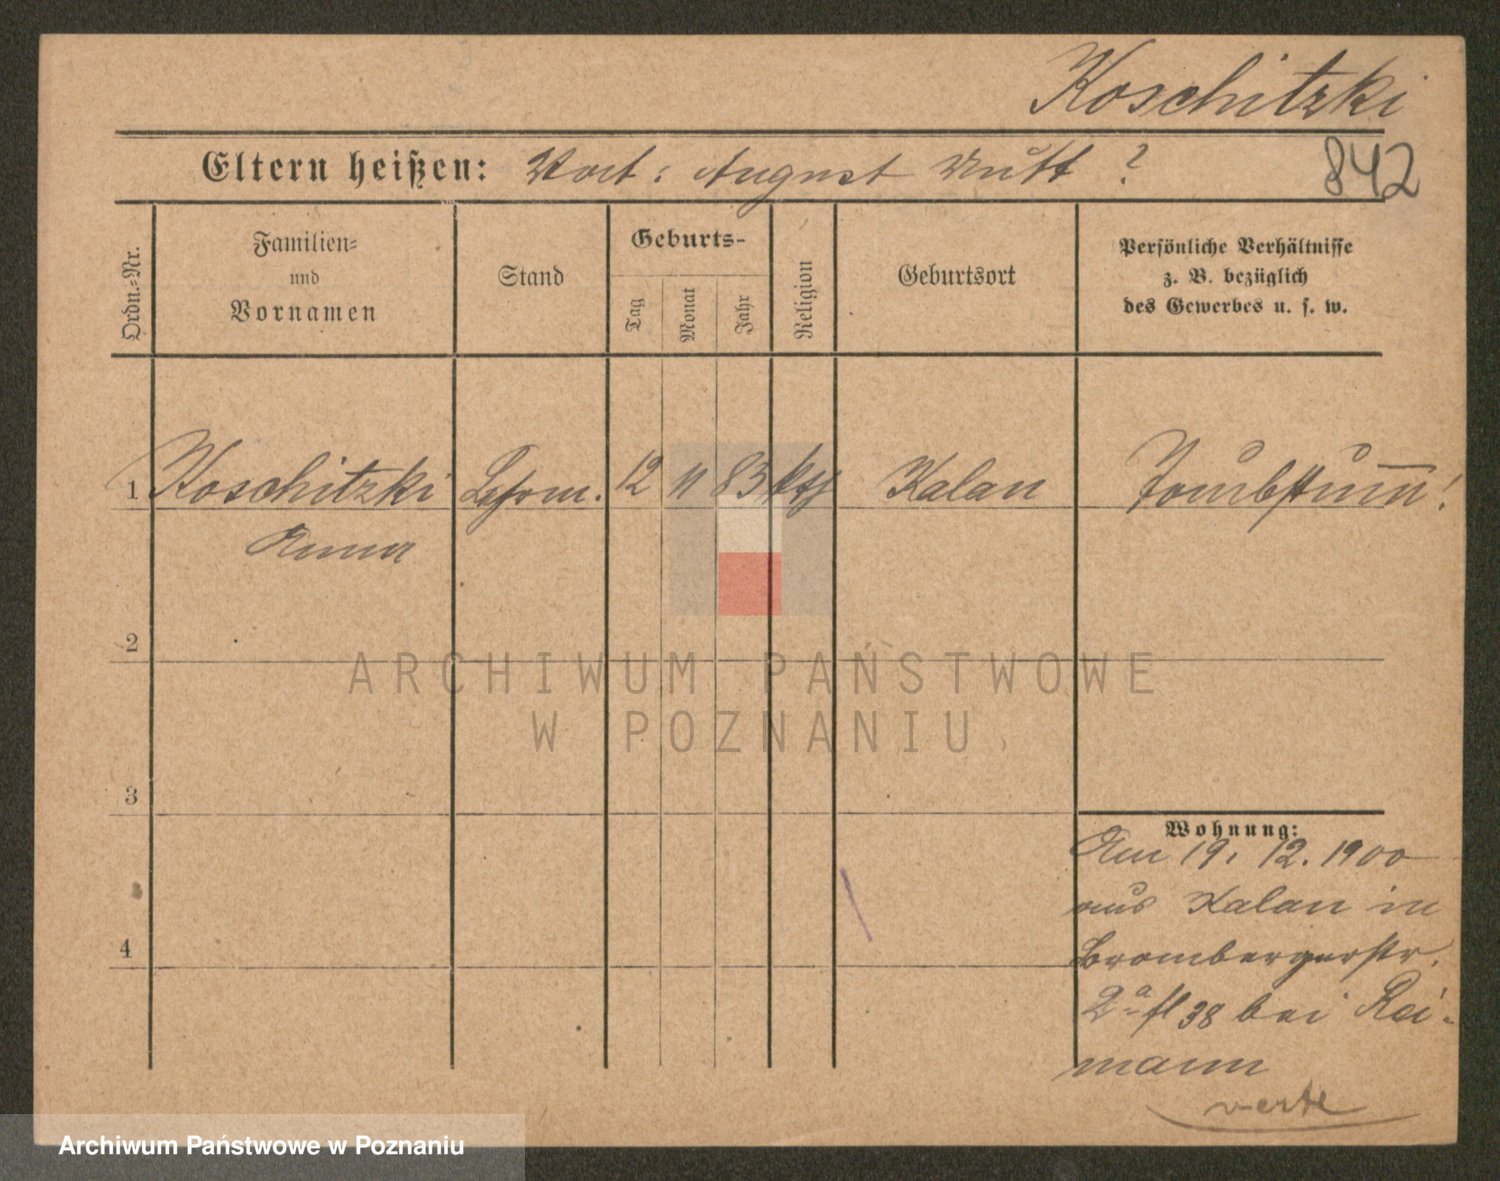 Koschitzki
Eltern heißen: Vat: August Mutt ?
842
Ordn.-Nr.
Familien-
und
Vornamen
Stand
Geburts-
Tag
Monat
Jahr
Religion
Geburtsort
Persönliche Verhältnisse
z. B. bezüglich
des Gewerbes u. s. w.
1 Koschitzki 12 11 83 kth Kalau Taubstumm!
Anna
2
ARCHIWUM PAŃSTWOWE
W POZNANIU
3
Wohnung:
Am 19. 12. 1900
aus Kalau in
4
Brombergerstr.
2a bei Rei-
mann
verte
Archiwum Państwowe w Poznaniu